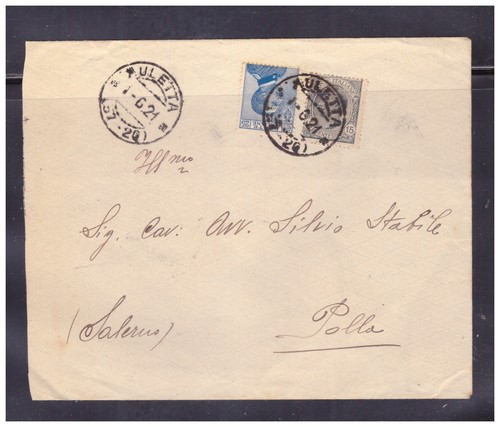 AULETTA
1-6.21
AULETTA
1-6.21
15
Ill mo
Sig. Cav. Avv. Silvio Stabile
(Salerno) Polla